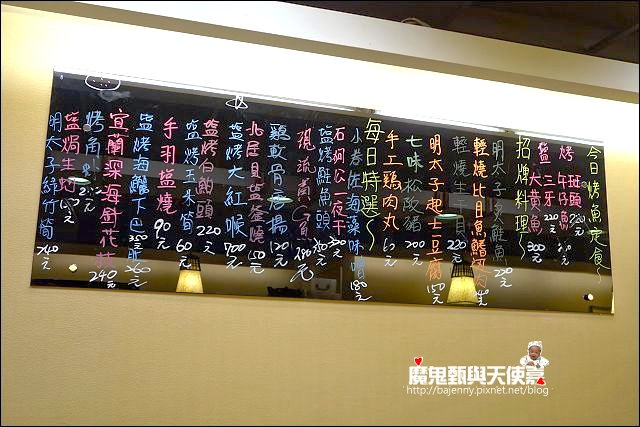 今日烤魚定食~
斑頭 220元
烤午仔魚
鹽三牙 220元
大黃魚 300元
招牌料理~
明太子 鮭魚 220元
輕燒比目魚鰭
輕燒生干貝 220元
明太子起士豆腐 150元
七味松阪豬 200元
手工雞肉丸 60元
每日特選~
小卷佐海藻味噌 180元
石狗公一夜干 300元
鹽烤鮭魚頭
雞軟骨唐揚 120元
北海貝鹽釜燒 150元
鹽烤大紅喉 700元
鹽烤白鯧頭 220元
鹽烤玉米筍 60元
手羽鹽燒 90元
鹽烤海鱺下巴 260元
宜蘭深海針花枝 240元
烤角
鹽焗生蚵
明太子綠竹筍 240元
魔鬼甄與天使嘉
http://bajenny.pixnet.net/blog